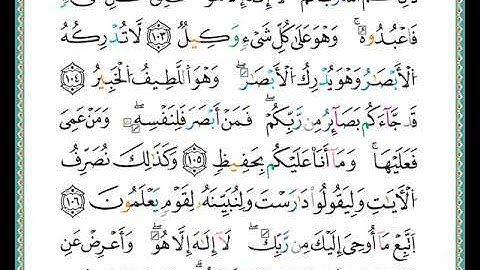 فَاعْبُدُوهُۚ وَهُوَ عَلَىٰ كُلِّ شَىْءٍ وَكِيلٌ ١٠٣ لَّا تُدْرِكُهُ
الْأَبْصَٰرُ وَهُوَ يُدْرِكُ الْأَبْصَٰرَۖ وَهُوَ اللَّطِيفُ الْخَبِيرُ ١٠٤
قَدْ جَآءَكُم بَصَآئِرُ مِن رَّبِّكُمْۖ فَمَنْ أَبْصَرَ فَلِنَفْسِهِۦۖ وَمَنْ عَمِىَ
فَعَلَيْهَاۚ وَمَآ أَنَا۠ عَلَيْكُم بِحَفِيظٍ ١٠٥ وَكَذَٰلِكَ نُصَرِّفُ
الْأٓيَٰتِ وَلِيَقُولُوا۟ دَٰرَسْتَ وَلِنُبَيِّنَهُۥ لِقَوْمٍ يَعْلَمُونَ ١٠٦
اتَّبِعْ مَآ أُوحِىَ إِلَيْكَ مِن رَّبِّكَۖ لَآ إِلَٰهَ إِلَّا هُوَۖ وَأَعْرِضْ عَنِ